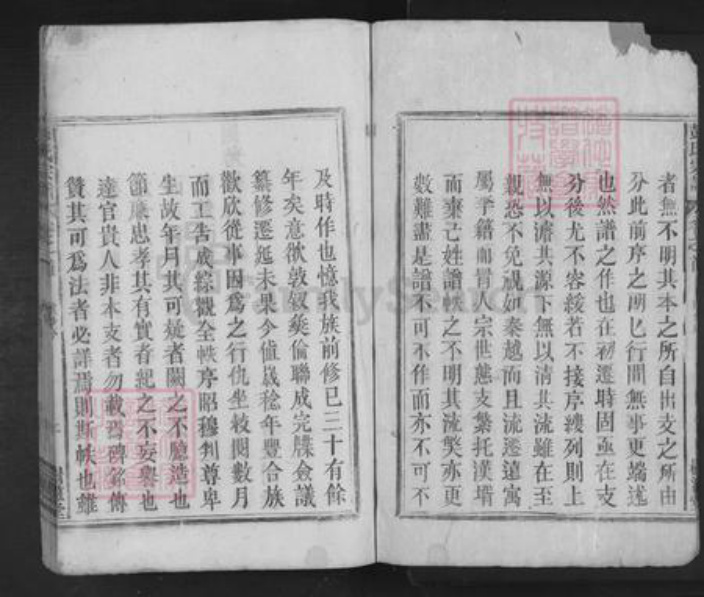 者無不明其本之所自出支之所由
分此前序之所已行間無事更端述
也然譜之作也在初遷時固亟在支
分後尤不容緩若不接序纘列則上
無以濬其源下無以清其流雖在至
親恐不免視如秦越而且流遷遠寓
屬乎籍而冒人宗世態支繁托漢壻
而棄己姓譜帙之不明其流獘亦更
數難盡是譜不可不作而亦不可不
及時作也憶我族前修已三十有餘
年矣意欲敦敘彜倫聯成完牒僉議
纂修遷延未果今值歲稔年豐合族
歡欣從事因為之行仇坐校閱數月
而工告成綜觀全帙序昭穆列尊卑
生故年月其可疑者闕之不臆造也
節廉忠孝其有實者紀之不妄譽也
達官貴人非本支者勿載焉碑銘傳
贊其可為法者必詳焉則斯帙也雖
FamilySearch